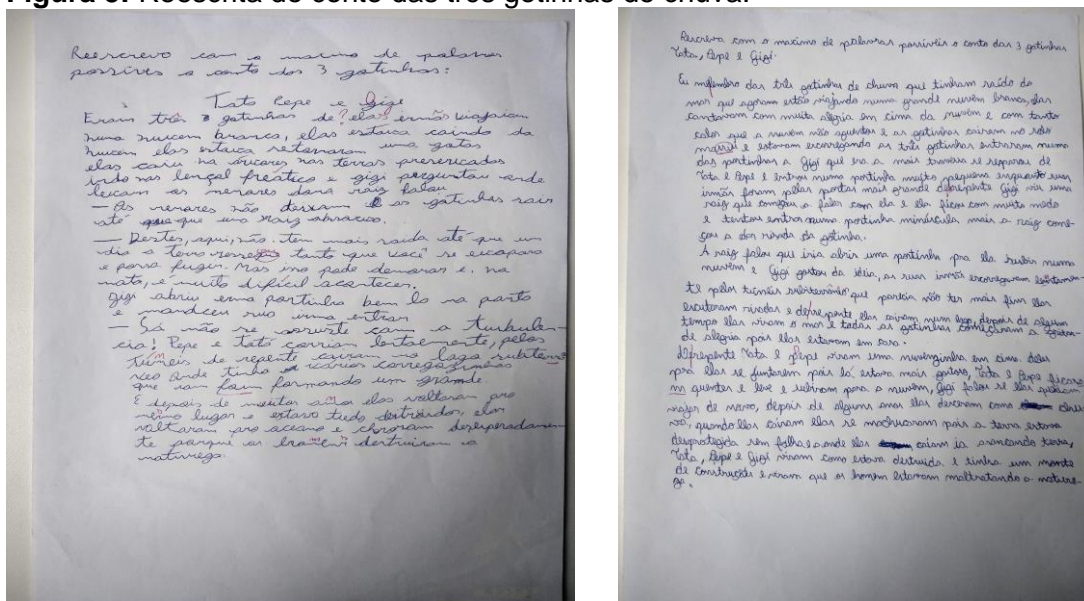 Figura 3: Reescrita do conto das três gotinhas de chuva.
Reescrevo com o maximo de palavras
possíves o conto dos 3 gotinhas:
Tato Pepe e Gige
Eram três gotinhas de? elas? viajaram
numa nuvem branca, elas estava caindo da
nuvem elas estava retornaram uma gotas
elas caru na árvores nas terras
indo nas lençal freático e gigi perguntau onde
raiz falau
— As não deixam as gotinhas sair
até que uma raiz abracou.
— Destes, aqui, não. tem mais saida até que um
dia a tanto que você se escapara
e possa fugir. Mas isso pode demorar e. na
mato, é muito difícil acontecer.
gigi abriu uma portinha bem lo na parto
e mandou entrar
— Só não se assuste com a turbulen-
cia! Pepe e Tato corriam lentaemente, pelos
túmeis de repente cairam no lago subterra
neo onde tinha varios corregozinhos
que iam formando um grande.
E depois de muitos anos eles voltaram pro
mesmo lugar e estava tudo destruidos, elas
voltaram pro oceano e choraram desesperadamen-
te parque os destruiram a
natureza.
Rescreva com o maximo de palavras possivéis o conto das 3 gotinhas
Tata, Pepe e Gigi.
Eu das três gotinhas de chuva que tinham saído do
mar que agoram estão viajando numa grande nuvem branca, elas
cantavam com muita alegria em cima da nuvem e com tanto
calor que a nuvem não aguntou e as gotinhas cairam no solo
e estavam escorregando as três gotinhas entraram numa
das portinhas a Gigi que era a mais se separou de
Tata e Pepe e entrou numa portinha muito pequena enquanto suas
irmãs foram pelas portas mais grande derepente Gigi viu uma
raiz que começou a falar com ela e ela ficou com muito medo
e tentou entrar numa portinha minúscula mais a raiz come-
çou a dar risada da gotinha.
A raiz falou que iria abrir uma portinha pra ela subir numa
nuvem e Gigi gostou da ideia, as suas irmãs escorregavam lentamen-
te pelos tuneis subterrâneo que parecia não ter mais fim elas
escutaram risadas e derepente elas cairam num lago, depois de algum
tempo elas viram o mar e todas as gotinhas começaram a
de alegria pois elas estavam em casa.
derepente Tata e Pepe viram uma nuvenzinha em cima delas
pra elas se juntarem pois lá estava mais gostoso, Tata e Pepe ficara
m quentes e leve e subiram para a nuvem, Gigi falou se elas queriam
viajar de novo, depois de alguns anos elas desceram como chu
va, quando elas cairam elas se machucaram pois a terra estava
desprotegida sem folhas aonde elas caiam ia arrancando terra,
Tata, Pepe e Gigi viram como estava destruida e tinha um monte
de construções e viram que os homem estavam maltratando a nature-
za.